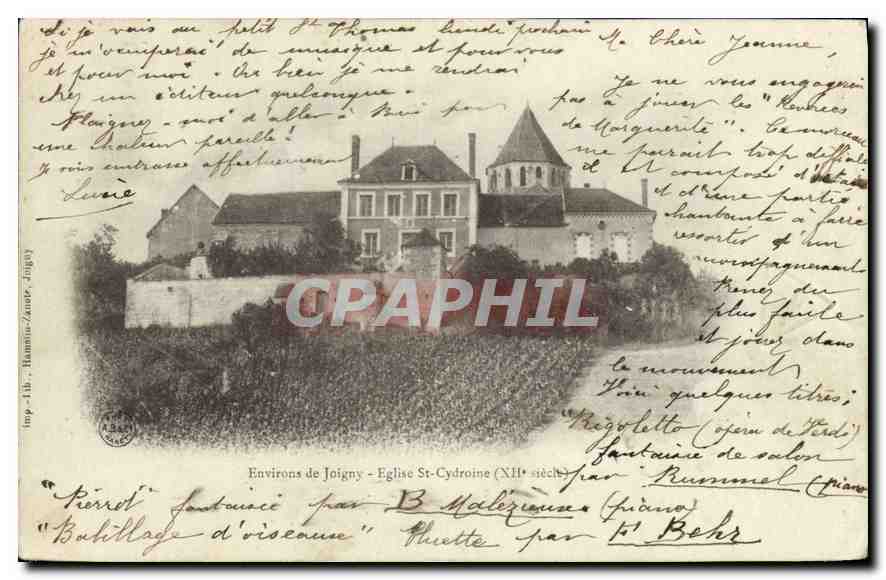 Ma Chère Jeanne,
Je ne vous engagerai
pas à jouer les "
de Marguerite". Ce morceau
me paraît trop difficile
il est composé d'
et d'une partie
chantante à faire
ressortir d'un
accompagnement
Prenez du
plus facile
et jouez dans
le mouvement
Voici quelques titres;
"Rigoletto (opéra de Verdi)
fantaisie de salon
par Rummel (piano
"Pierrot" fantaisie par B Malézieux (piano)
"Babillage d'oiseaux" Fluette par F Behr
Si je vais au petit St Thomas lundi prochain
je m'occuperai de musique et pour vous
et pour moi. Ou bien je me rendrai
chez un éditeur quelconque.
Plaignez-moi d'aller à par
une chaleur pareille!
Je vous embrasse affectueusement
Lucie
Imp.-Lib. Hamelin-Zanote, Joigny
CPAPHIL
Environs de Joigny - Eglise St-Cydroine (XIIe siècle)